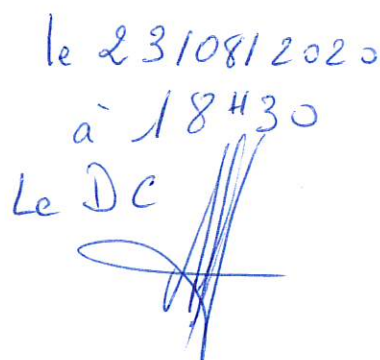 le 23/08/2020
à 18H30
Le DC